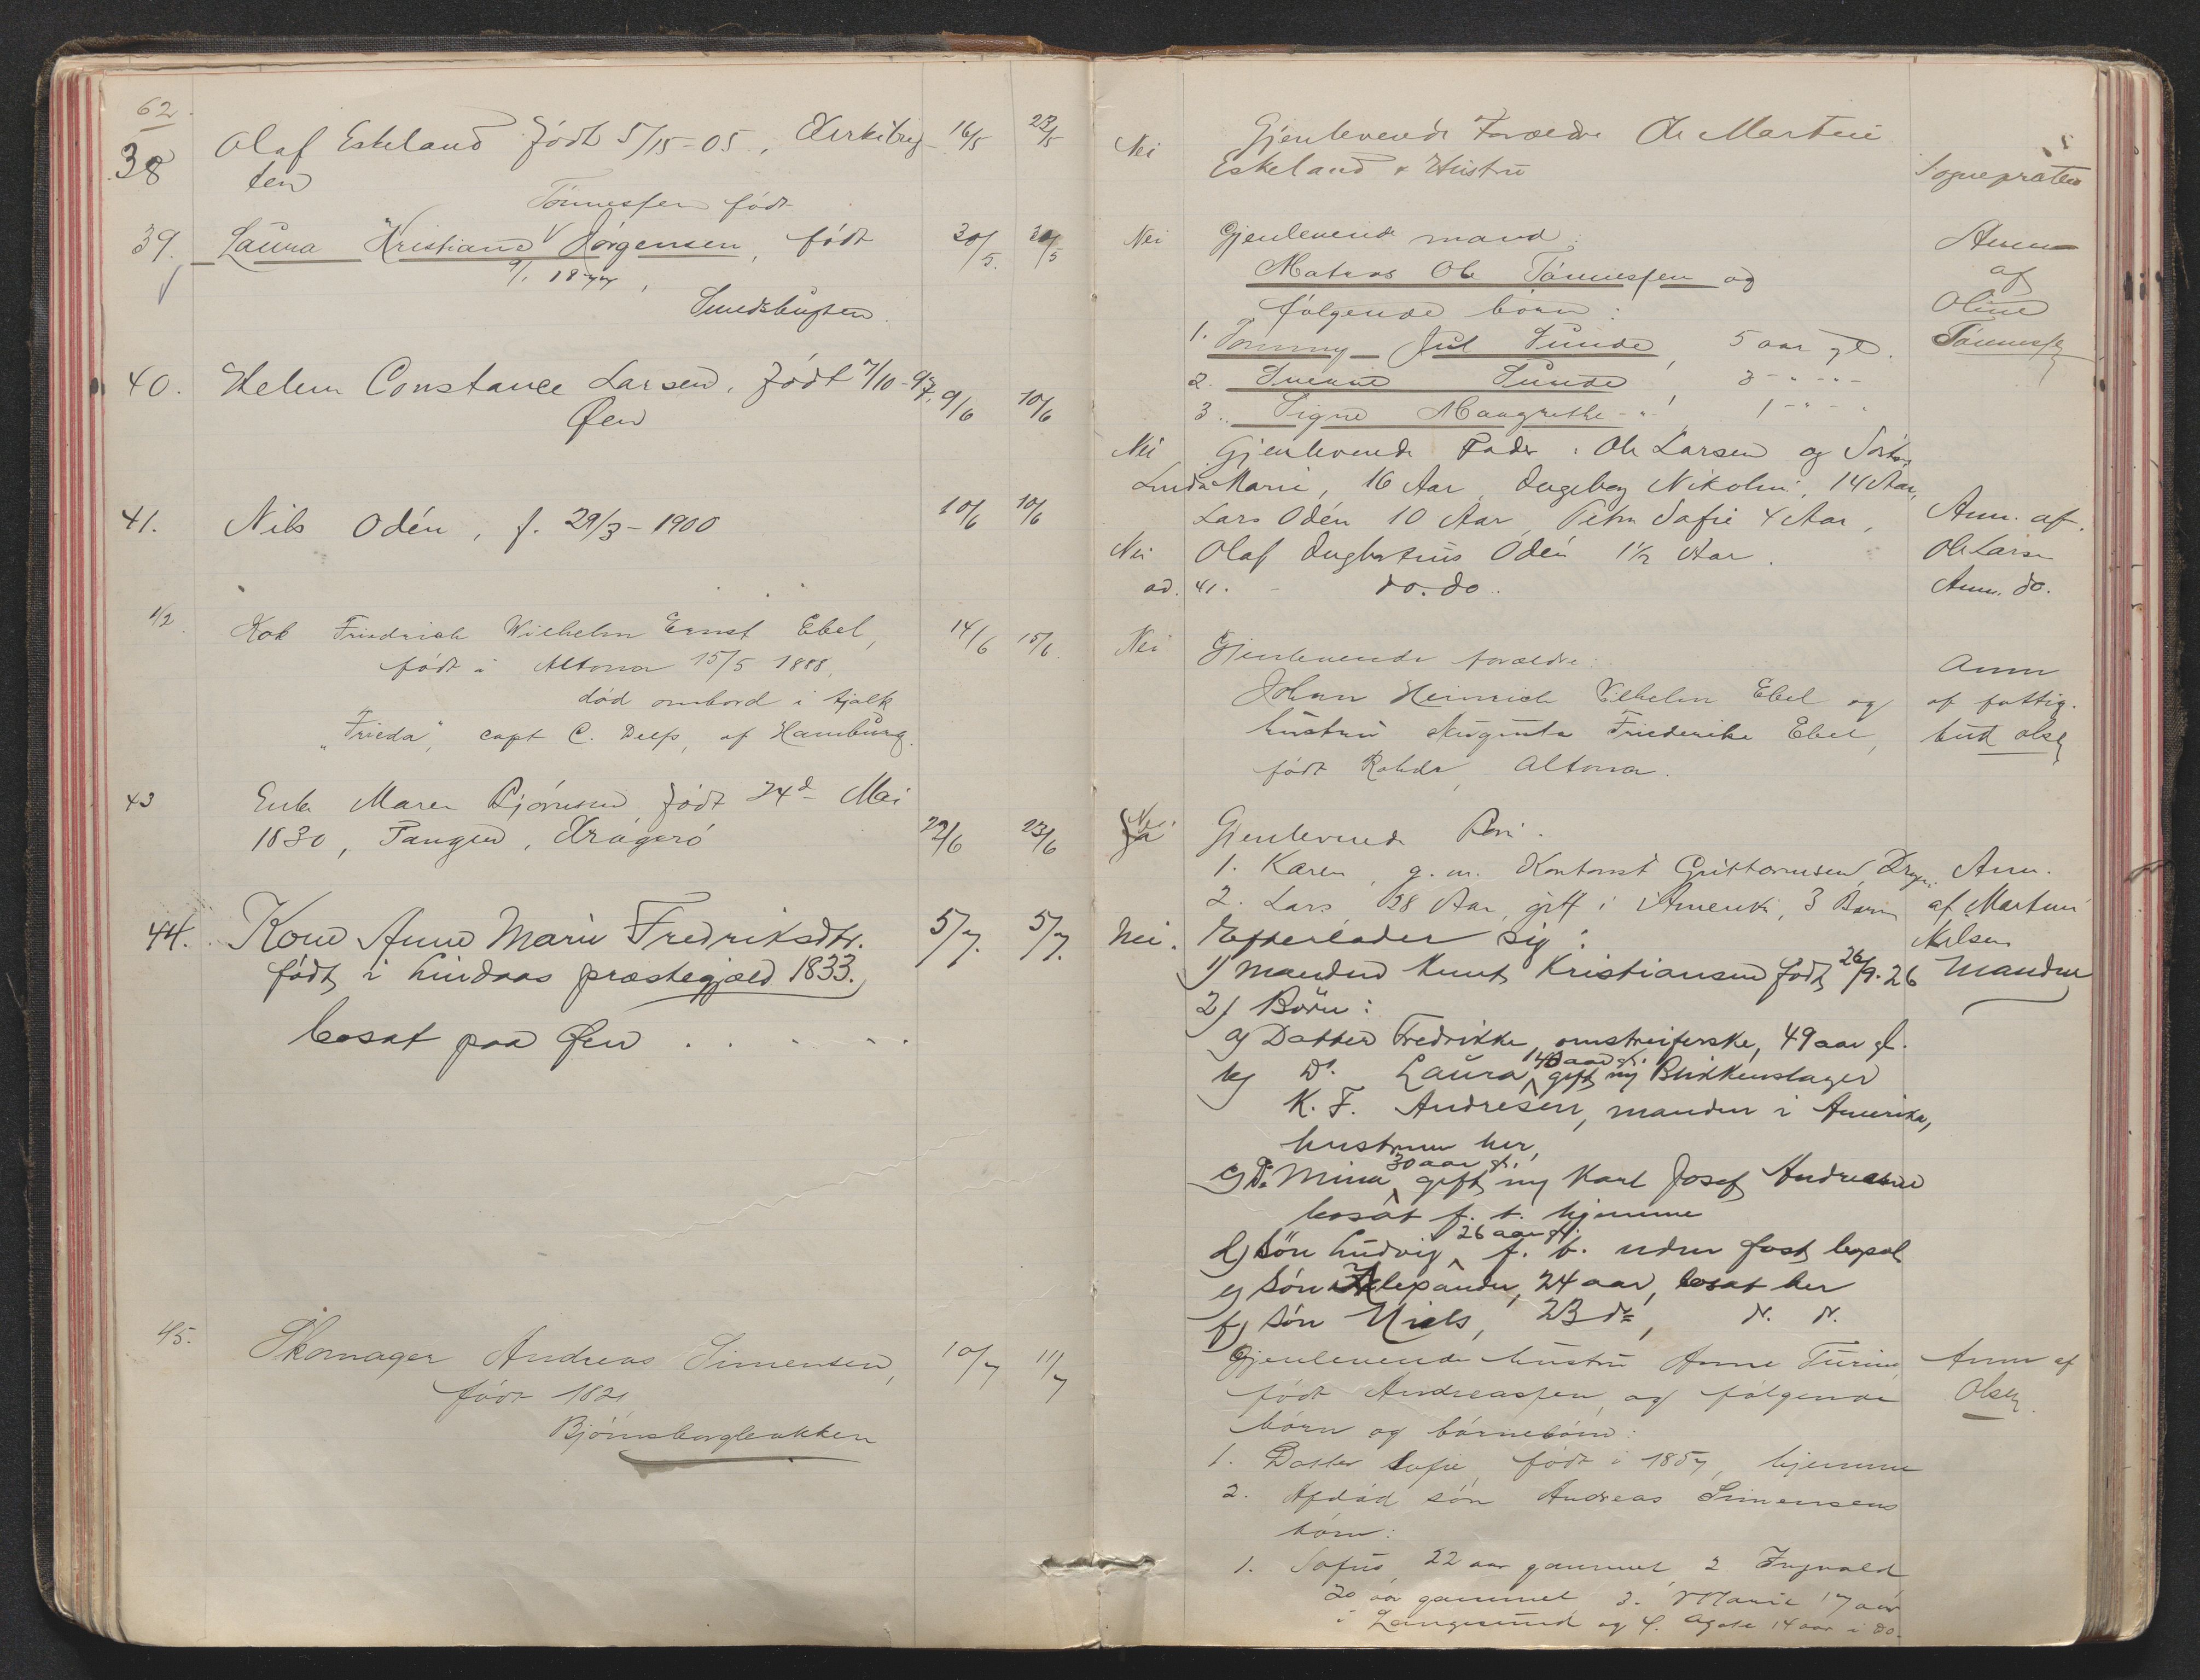 62
38 Olaf Eskeland Født 5/15-05, Kirkebug-
ten 16/5 23/5
Tönnessen født
39. Laura Kristiane Jørgensen, født 30/5. 30/5
9/1 1877,
Smedsbugten.
40. Helene Constance Larsen. Født 7/10-97, 9/6 10/6
Øen
41. Nils Odén, f. 29/3-1900 10/6 10/6
42. Kok Friedrich Wilhelm Ernst Ebel, 14/6 15/6.
født i Altona 15/5 1888,
død ombord i tjalk
"Frieda", capt C. Delfs, af Hamburg.
43 Enke Maren Bjørnsen Født 24d Mai
1830, Tangen, Kragerö 22/6 23/6
44. Kone Anne Marie Fredriksdtr. 5/7. 5/7.
født i Lindaas præstegjæld 1833.
bosat paa Øen . . . . .
45. Skomager Andreas Simensen, 10/7 11/7
født 1821
Bjørnsborgbakken
Nei Gjenlevende Forældre Ole Martin
Eskeland & Hustru Sognepræsten
Nei Gjenlevende mand: Anm
Matros Ole Tönnessen og af
følgende børn: Oline
1. Jul Sunde, 5 aar gl. Tönnessen
2. Sunde 3 - " - " -
3. Signe Maagrethe - " - 1 - " - "
Nei Gjenlevende Fader: Ole Larsen og
Marie, 16 Aar, Ingeborg Nikoline, 14 Aar,
Lars Odén 10 Aar, Petra Sofie 4 Aar, Anm. af.
Nei Olaf Odén 1½ Aar. Ole Larsen
ad. 41. - do. do. Anm. do.
Nei Gjenlevende forældre: Anm
Johan Heinrich Vilhelm Ebel og af fattig-
hustru Augusta Friederike Ebel, bud Olsen
født Rohde, Altona.
Ja Nei Gjenlevende Børn.
1. Karen, g. m. Kontorist Guttormsen, Anm.
2. Lars, 38 Aar, gift i Amerika, 3 Børn af Martin
Nei. Efterlader sig: Nilsen
1) Manden Knut Kristiansen født 26/9.26 Manden
2) Börn:
a) Datter Fredrikke, omstreiferske, 49 aar gl.
b) Do. Laura, 40 aar gl. gift m/ Blikkenslager
K. F. Andresen, manden i Amerika,
hustruen her,
c) Do. Mina 30 aar gl. gift m/ Karl Josef Andreasen
bosat f. t. hjemme
d) Sön Ludvig 26 aar gl. f. t. uden fast bopæl
e) Sön Alexander, 24 aar, bosat her
f) Sön Niels, 23 do, do. do.
Gjenlevende hustru Anne Turine, Anm af
født Andreassen, og følgende Olsen
børn og børnebørn:
1. Datter Sofie, født i 1857, hjemme
2. Afdød søn Andreas Simensens
børn:
1. Sofus, 22 aar gammel 2 Ingvald
20 aar gammel 3. Marie 17 aar
i Langesund og 4. Agate 14 aar i do.